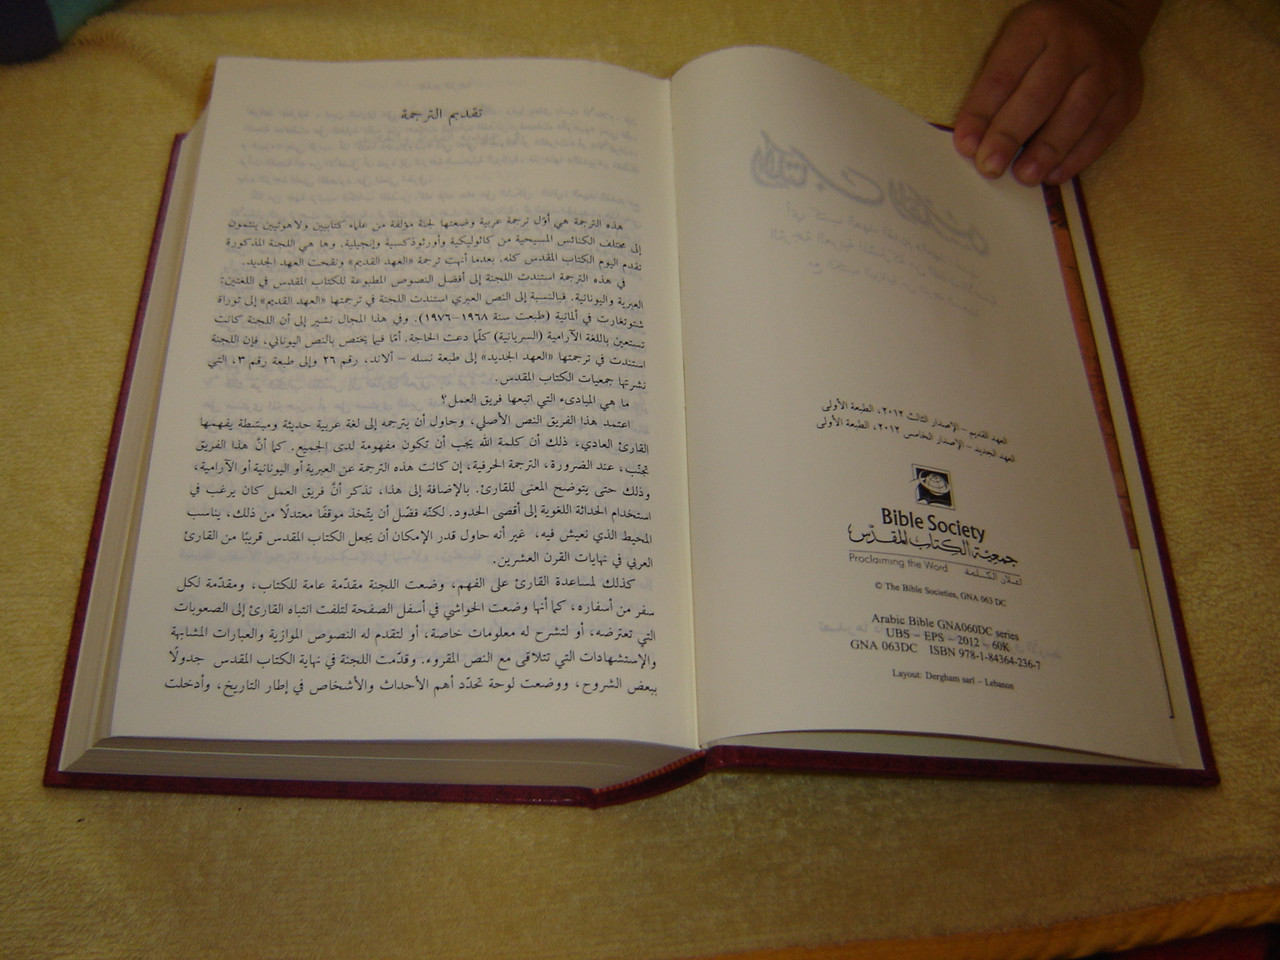 العهد القديم – الإصدار الثالث ٢٠١٢، الطبعة الأولى
العهد الجديد – الإصدار الخامس ٢٠١٢، الطبعة الأولى
Bible Society
جمعية الكتاب المقدّس
Proclaiming the Word إعلان الكلمة
© The Bible Societies, GNA 063 DC
Arabic Bible GNA060DC series
UBS – EPS – 2012 – 60K
GNA 063DC ISBN 978-1-84364-236-7
Layout: Dergham sarl – Lebanon
تقديم الترجمة
هذه الترجمة هي أوّل ترجمة عربية وضعتها لجنة مؤلفة من علماء كتابيين ولاهوتيين ينتمون
إلى مختلف الكنائس المسيحية من كاثوليكية وأورثوذكسية وإنجيلية. وها هي اللجنة المذكورة
تقدم اليوم الكتاب المقدس كله، بعدما أنهت ترجمة «العهد القديم» ونقحت العهد الجديد.
في هذه الترجمة استندت اللجنة إلى أفضل النصوص المطبوعة للكتاب المقدس في اللغتين:
العبرية واليونانية. فبالنسبة إلى النص العبري استندت اللجنة في ترجمتها «العهد القديم» إلى توراة
شتوتغارت في ألمانية (طبعت سنة ١٩٦٨–١٩٧٦). وفي هذا المجال نشير إلى أن اللجنة كانت
تستعين باللغة الآرامية (السريانية) كلّما دعت الحاجة. أمّا فيما يختص بالنص اليوناني، فإن اللجنة
استندت في ترجمتها «العهد الجديد» إلى طبعة نسله – ألاند، رقم ٢٦ وإلى طبعة رقم ٣، التي
نشرتها جمعيات الكتاب المقدس.
ما هي المبادىء التي اتبعها فريق العمل؟
اعتمد هذا الفريق النص الأصلي، وحاول أن يترجمه إلى لغة عربية حديثة ومبسّطة يفهمها
القارئ العادي، ذلك أن كلمة الله يجب أن تكون مفهومة لدى الجميع. كما أنَّ هذا الفريق
تجنّب، عند الضرورة، الترجمة الحرفية، إن كانت هذه الترجمة عن العبرية أو اليونانية أو الآرامية،
وذلك حتى يتوضح المعنى للقارئ. بالإضافة إلى هذا، نذكر أنَّ فريق العمل كان يرغب في
استخدام الحداثة اللغوية إلى أقصى الحدود. لكنّه فضّل أن يتّخذ موقفًا معتدلًا من ذلك، يناسب
المحيط الذي نعيش فيه، غير أنه حاول قدر الإمكان أن يجعل الكتاب المقدس قريبًا من القارئ
العربي في نهايات القرن العشرين.
كذلك لمساعدة القارئ على الفهم، وضعت اللجنة مقدّمة عامة للكتاب، ومقدّمة لكل
سفر من أسفاره، كما أنها وضعت الحواشي في أسفل الصفحة لتلفت انتباه القارئ إلى الصعوبات
التي تعترضه، أو لتشرح له معلومات خاصة، أو لتقدم له النصوص الموازية والعبارات المشابهة
والإستشهادات التي تتلاقى مع النص المقروء. وقدّمت اللجنة في نهاية الكتاب المقدس جدولًا
ببعض الشروح، ووضعت لوحة تحدّد أهم الأحداث والأشخاص في إطار التاريخ، وأدخلت